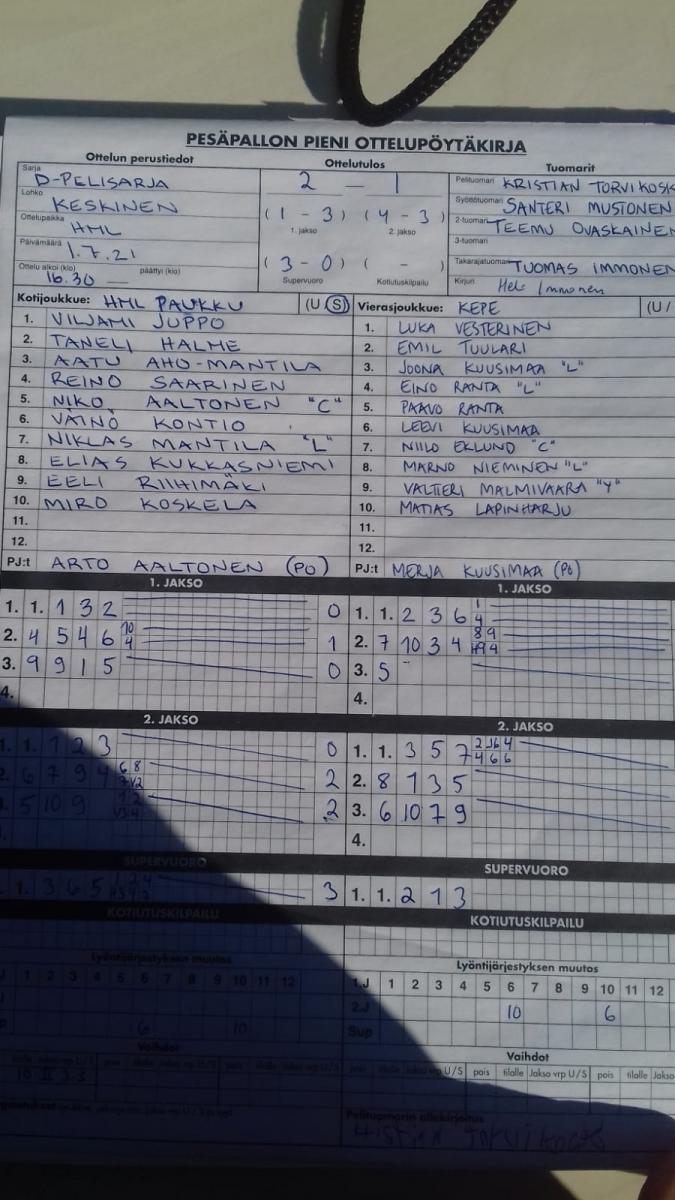 PESÄPALLON PIENI OTTELUPÖYTÄKIRJA
Ottelun perustiedot
Sarja
D-PELISARJA
Lohko
KESKINEN
Ottelupaikka
HML
Päivämäärä
1.7.21
Ottelu alkoi (klo) päättyi (klo)
16.30 —
Ottelutulos
2 — 1
(1 - 3) (4 - 3)
1. jakso 2. jakso
(3 - 0) ( - )
Supervuoro Kotiutuskilpailu
Tuomarit
Pelituomari KRISTIAN TORVIKOSK
Syöttötuomari SANTERI MUSTONEN
2-tuomari TEEMU OVASKAINEN
3-tuomari
Takarajatuomari TUOMAS IMMONEN
Kirjuri Immonen
Kotijoukkue: HML PAUKKU (U S)
1. VILJAMI JUPPO
2. TANELI HALME
3. AATU AHO-MANTILA
4. REINO SAARINEN
5. NIKO AALTONEN "C"
6. VÄINÖ KONTIO
7. NIKLAS MANTILA "L"
8. ELIAS KUKKASNIEMI
9. EELI RIIHIMÄKI
10. MIRO KOSKELA
11.
12.
PJ:t ARTO AALTONEN (PO)
Vierasjoukkue: KEPE (U /
1. LUKA VESTERINEN
2. EMIL TUULARI
3. JOONA KUUSIMAA "L"
4. EINO RANTA "L"
5. PAAVO RANTA
6. LEEVI KUUSIMAA
7. NIILO EKLUND "C"
8. MARNO NIEMINEN "L"
9. VALTTERI MALMIVAARA "Y"
10. MATIAS LAPINHARJU
11.
12.
PJ:t MERJA KUUSIMAA (PO)
1. JAKSO
1. 1. 1 3 2 0
2. 4 5 4 6 10 4 1
3. 9 9 1 5 0
4.
1. JAKSO
1. 1. 2 3 6 1 4
2. 7 10 3 4 8 9
3. 5
4.
2. JAKSO
1. 1. 1 2 3 0
2. 6 7 9 4 6 8 2
5 10 9 2
2. JAKSO
1. 1. 3 5 7 4 6 6
2. 8 1 3 5
3. 6 10 7 9
4.
SUPERVUORO
1. 3 6 5 3
SUPERVUORO
1. 1. 2 1 3
KOTIUTUSKILPAILU
KOTIUTUSKILPAILU
Lyöntijärjestyksen muutos
1 2 3 4 5 6 7 8 9 10 11 12
6 10
Vaihdot
Lyöntijärjestyksen muutos
1.J 1 2 3 4 5 6 7 8 9 10 11 12
2.J 10 6
Sup
Vaihdot
pois tilalle Jakso vrp U/S pois tilalle Jakso vrp U/S pois tilalle Jakso
Pelituomarin allekirjoitus